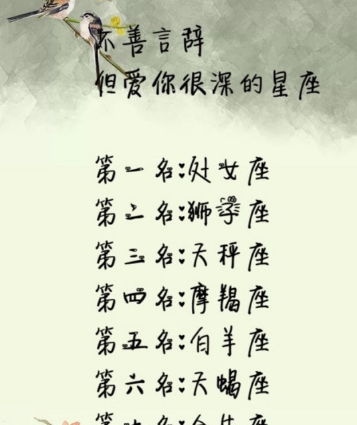 不善言辞
但爱你很深的星座
第一名:处女座
第二名:狮子座
第三名:天秤座
第四名:摩羯座
第五名:白羊座
第六名:天蝎座